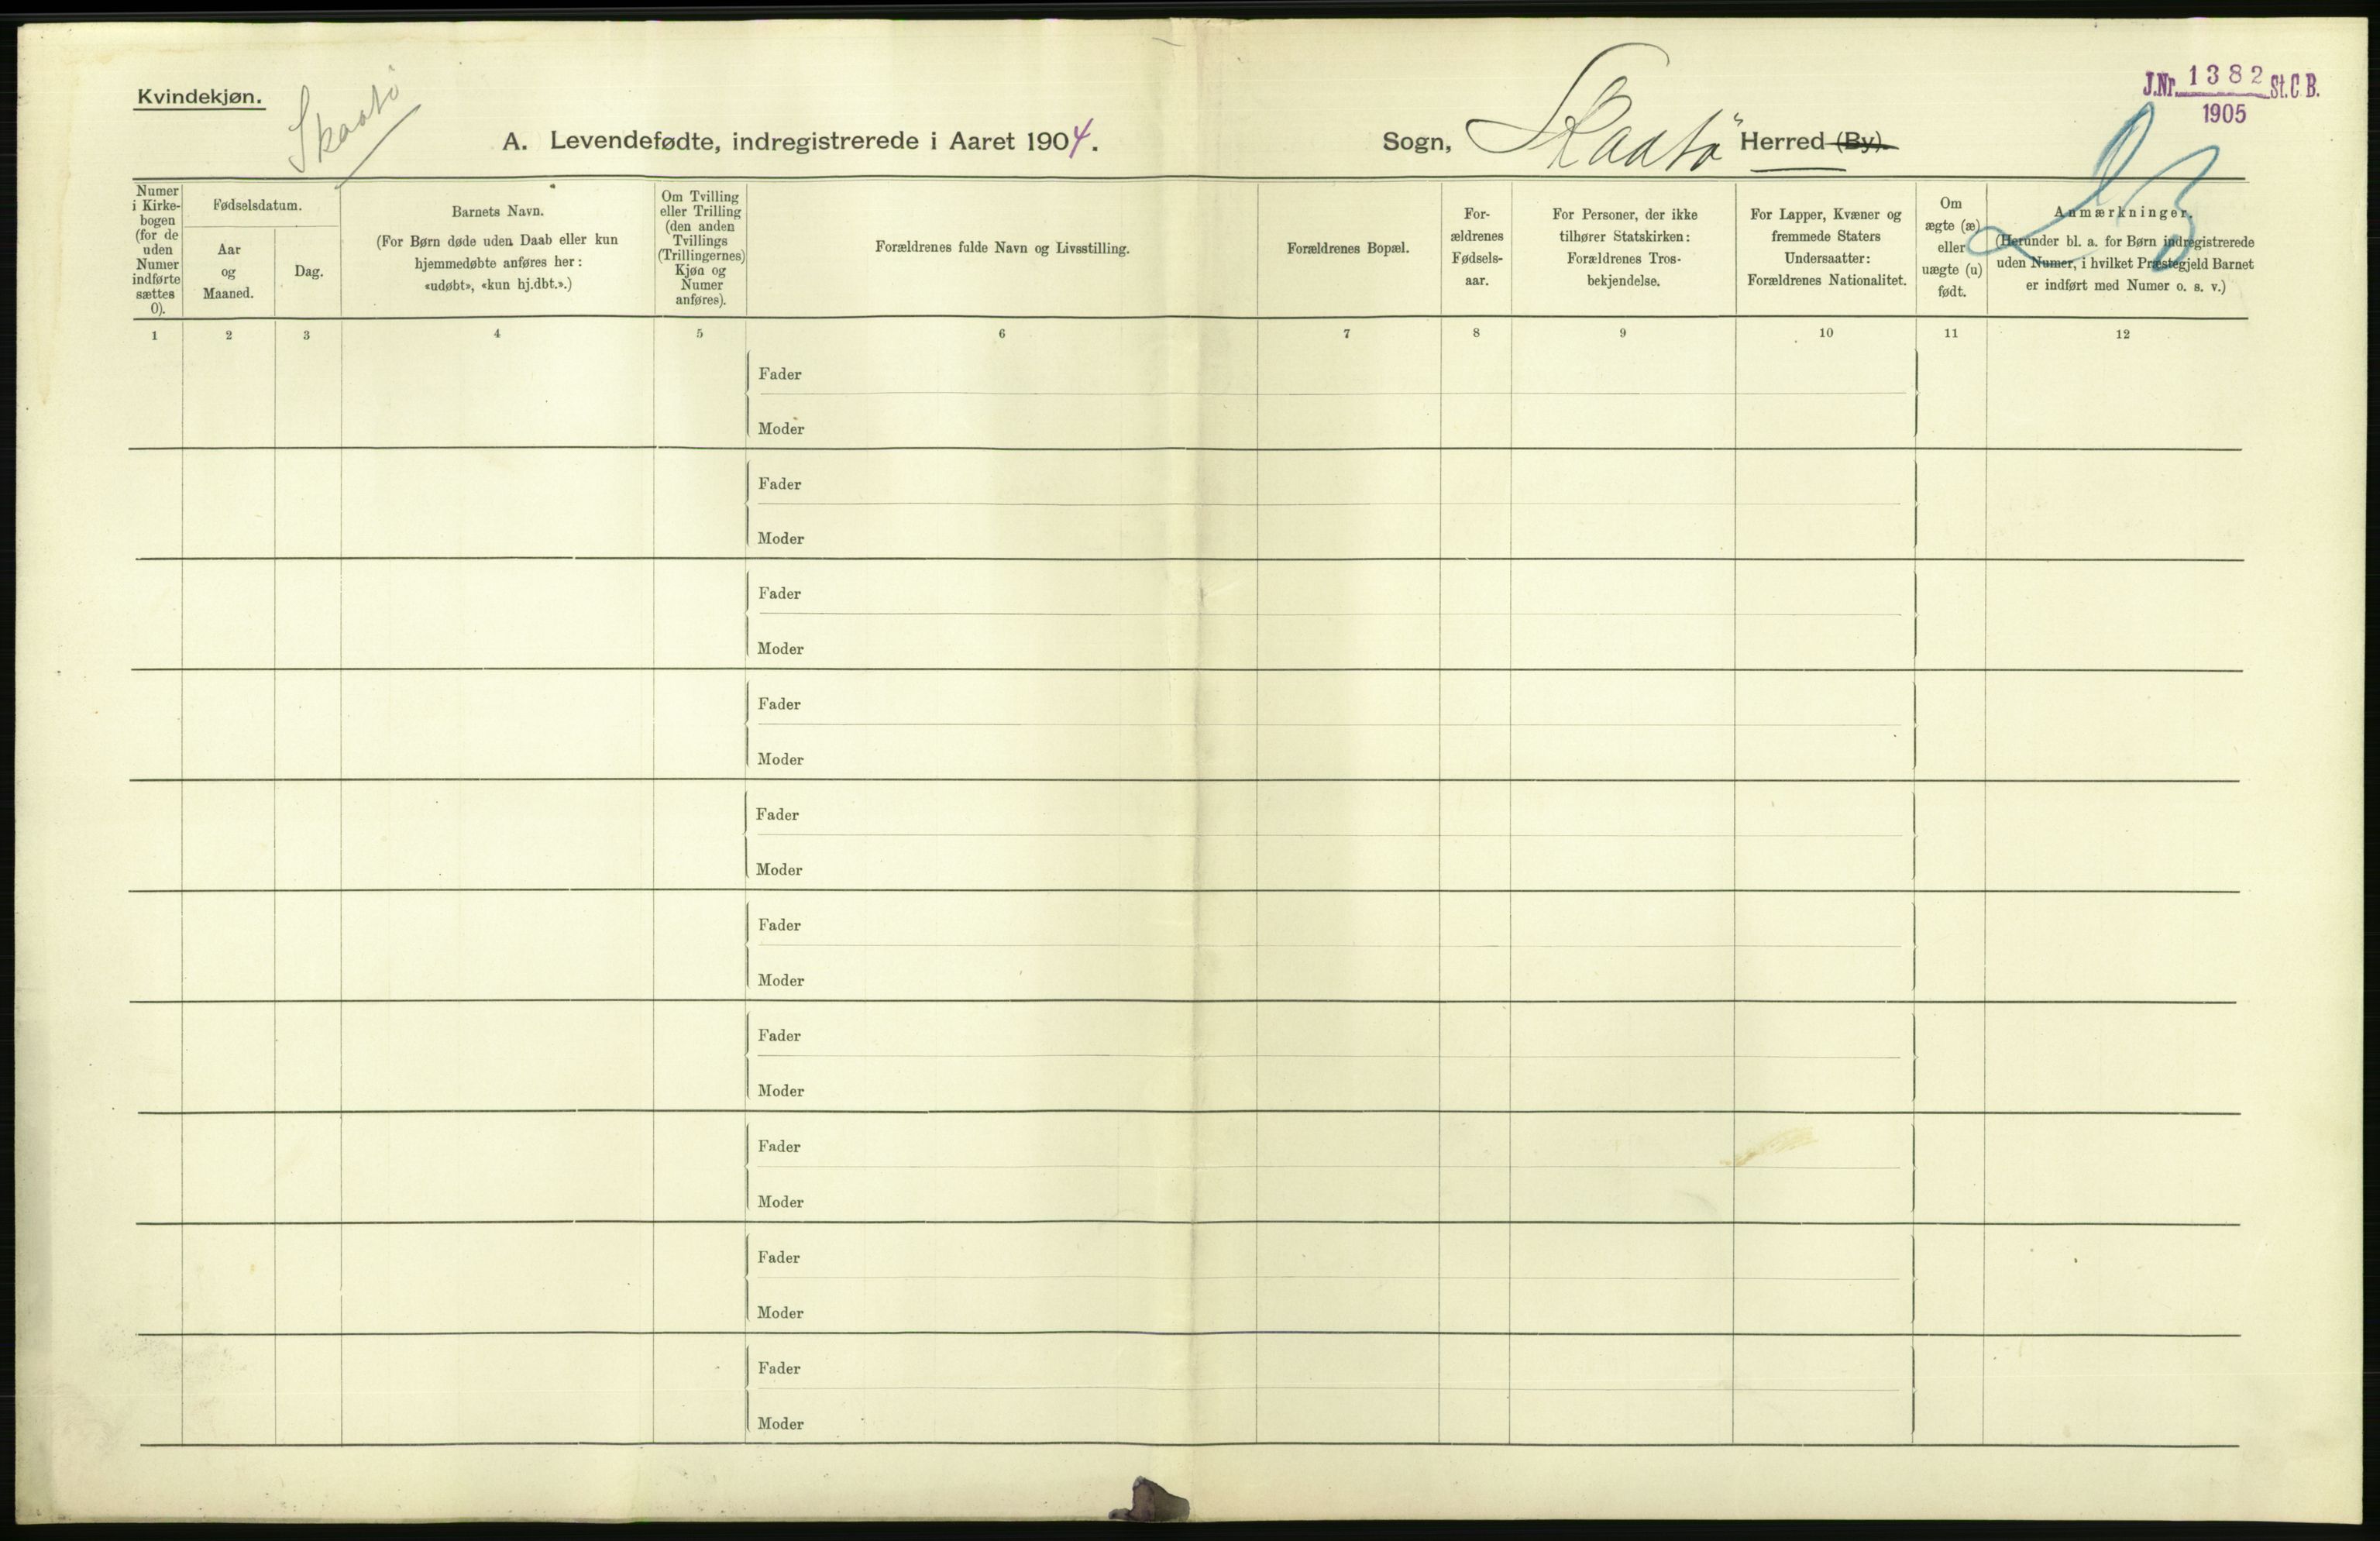 Kvindekjøn.
Skaatö
J.Nr. 1382 St.C.B.
1905
A. Levendefødte, indregistrerede i Aaret 1904.
Sogn, Skaatö Herred (By).
Numer
i Kirke-
bogen
(for de
uden
Numer
indførte
sættes
0).
Fødselsdatum.
Aar
og
Maaned.
Dag.
Barnets Navn.
(For Børn døde uden Daab eller kun
hjemmedøbte anføres her:
«udøbt», «kun hj.dbt.».)
Om Tvilling
eller Trilling
(den anden
Tvillings
(Trillingernes)
Kjøn og
Numer
anføres).
Forældrenes fulde Navn og Livsstilling.
Forældrenes Bopæl.
For-
ældrenes
Fødsels-
aar.
For Personer, der ikke
tilhører Statskirken:
Forældrenes Tros-
bekjendelse.
For Lapper, Kvæner og
fremmede Staters
Undersaatter:
Forældrenes Nationalitet.
Om
ægte (æ)
eller
uægte (u)
født.
Anmærkninger.
(Herunder bl. a. for Børn indregistrerede
uden Numer, i hvilket Præstegjeld Barnet
er indført med Numer o. s. v.)
1 2 3 4 5 6 7 8 9 10 11 12
Fader
Moder
Fader
Moder
Fader
Moder
Fader
Moder
Fader
Moder
Fader
Moder
Fader
Moder
Fader
Moder
Fader
Moder
Fader
Moder